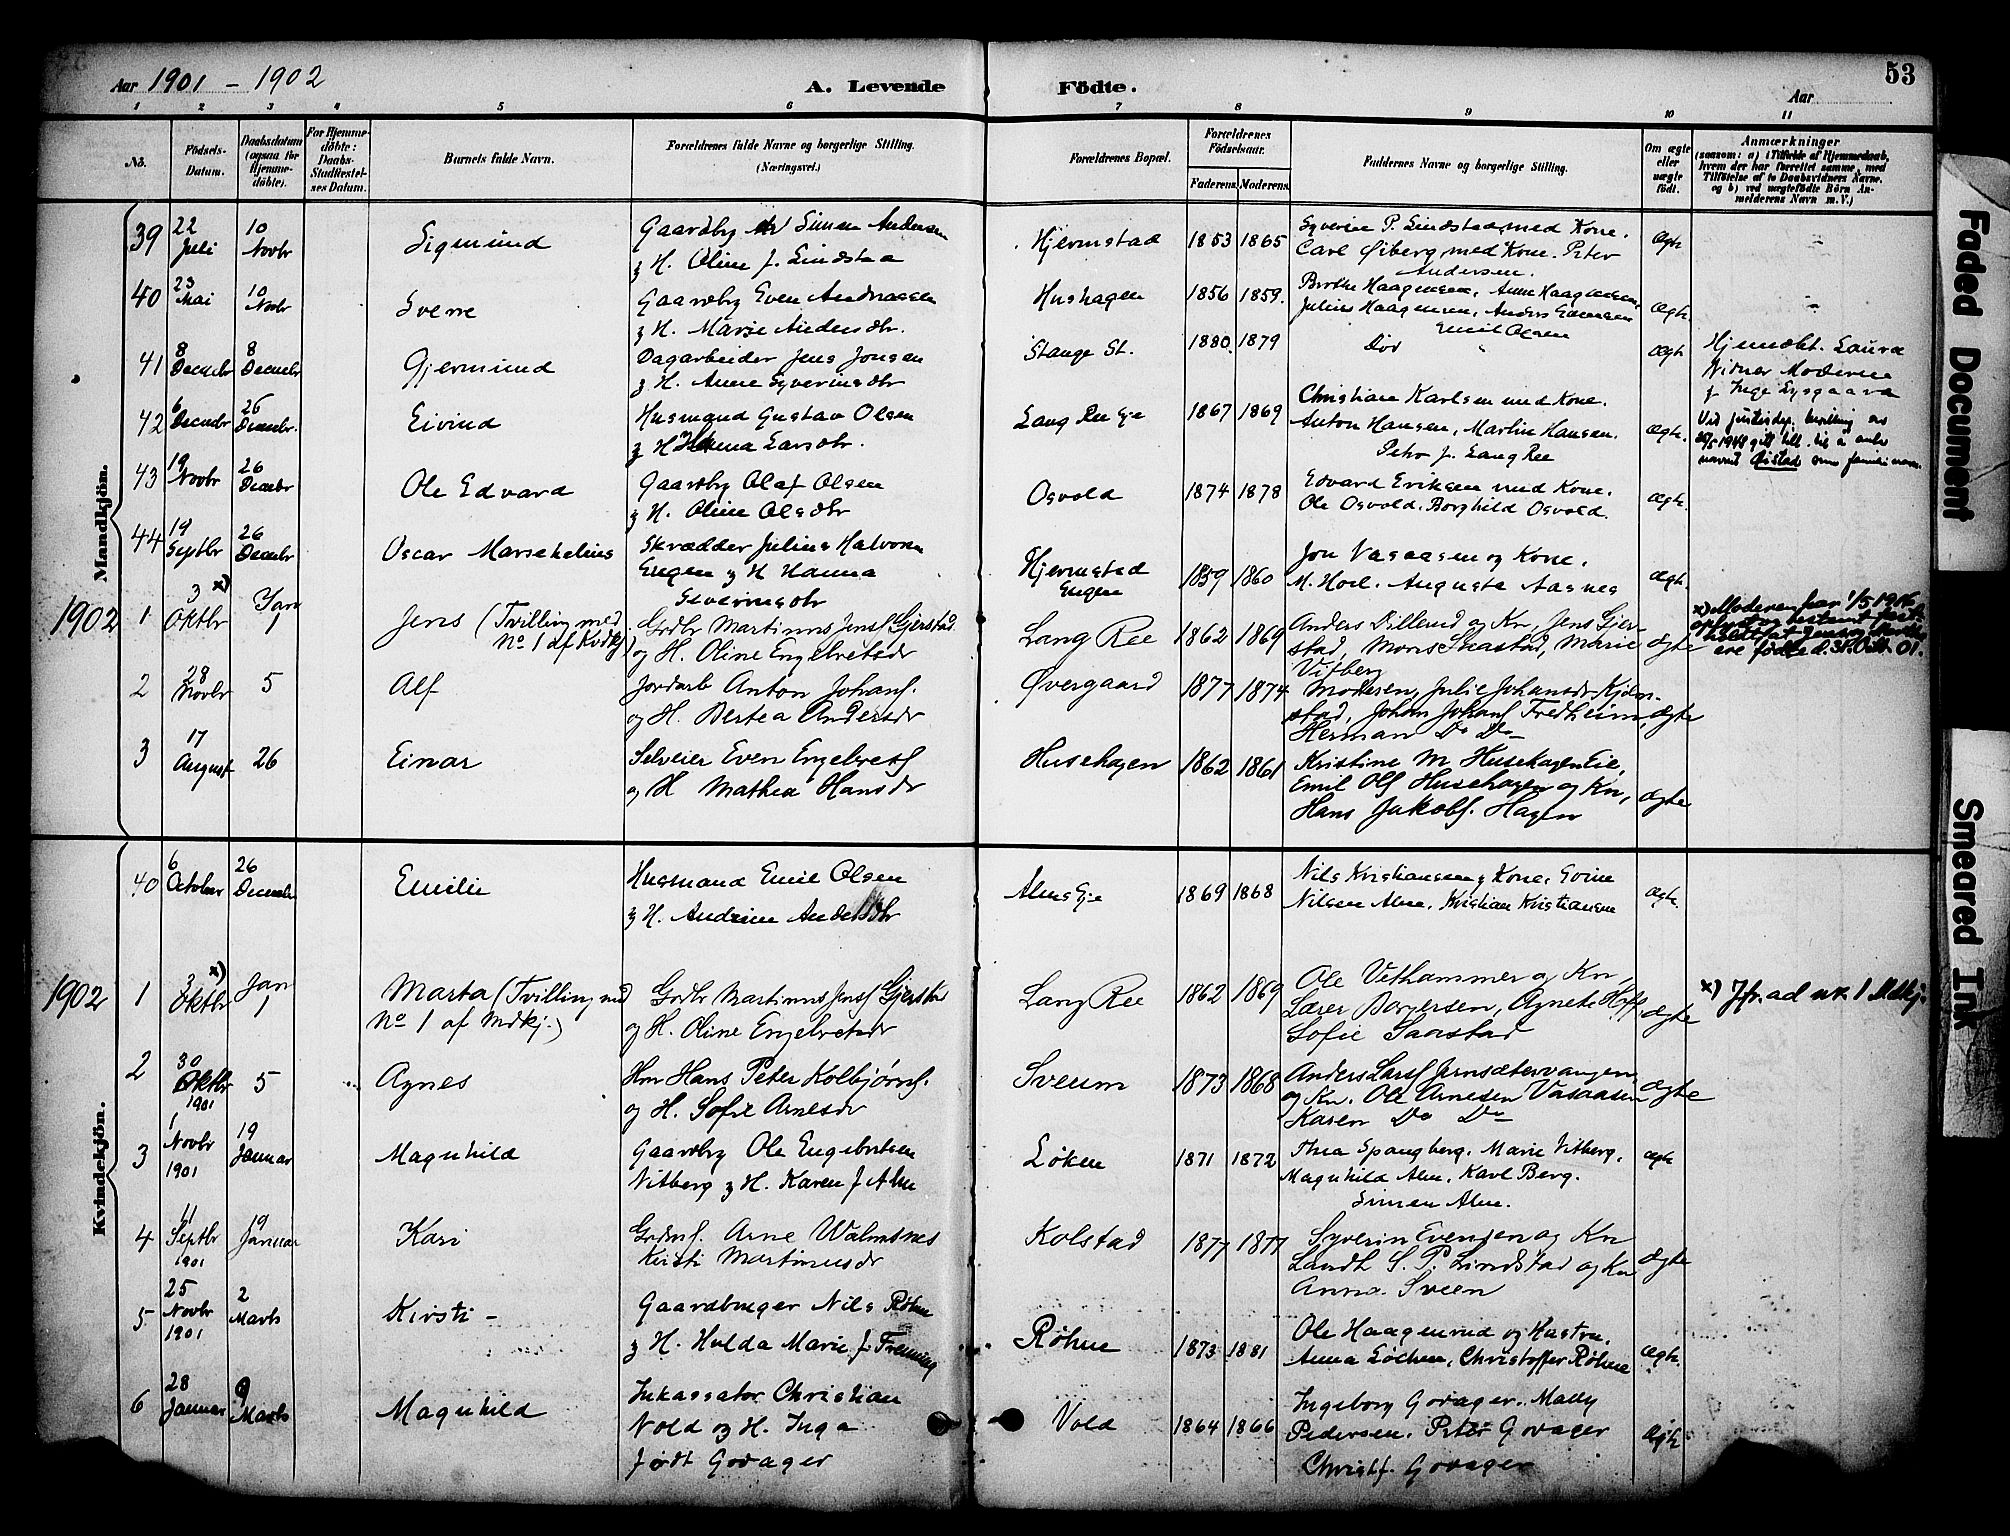 53
Aar 1901 - 1902
A. Levende Fødte.
Aar
1 2 3 4 5 6 7 8 9 10 11
No.
Födsels-Datum.
Daabsdatum (ogsaa for Hjemme-döbte).
For Hjemme-döbte: Daabs-Stadfæstel-ses Datum.
Barnets fulde Navn.
Forældrenes fulde Navne og borgerlige Stilling. (Næringsvei.)
Forældrenes Bopæl.
Forældrenes Födselsaar.
Faderens. Moderens.
Faddernes Navne og borgerlige Stilling.
Om ægte eller uægte født.
Anmærkninger
(saasom: a) i Tilfælde af Hjemmedaab, hvem der har forrettet samme, med Tilföielse af to Daabsvidners Navne, og b) ved uægtefödte Börn An-melderens Navn m. V.)
Mandkjön.
39 22 Juli 10 Novbr Sigmund Gaardbr Simen Andersen
g H. Oline f. Lindstaa Hjermstad 1853 1865 Syverin P. Lindstad med Kone.
Carl Øiberg med Kone. Peter
Andersen. Ægte
40 23 Mai 10 Novbr Sverre Gaardbr Even Andreassen
g H. Marie Andersdtr. Hushagen 1856 1859. Haagensen, Anne Haagensen,
Julius Haagensen, Anders Evensen
Emil Olsen Ægte.
41 8 Decmbr 8 Decmbr Gjermund Dagarbeider Jens Jonsen
g H. Anne Syverinsdtr Stange St. 1880 1879 Død Ægte
Hjemdøbt. Laura
Moderen
f Inge Lysgaard
42 6 Decmbr 26 Decmbr. Eivind Husmand Gustav Olsen
g H Helena Larsdtr. Lang Ree Eje 1867 1869 Christian Karlsen med Kone.
Anton Hansen, Martin Hansen.
Petra f. Lang Ree Ægte.
Ved justisdep. bevilling av
1948 gitt till. til å anta
navnet Øistad som familienavn.
43 19 Novbr 26 Decmbr Ole Edvard Gaardbr Olaf Olsen
g H. Oline Olsdtr Osvold 1874 1878 Edvard Eriksen med Kone.
Ole Osvold. Borghild Osvold. Ægte.
44 19 Septbr 26 Decmbr Oscar Marsekelius Skrædder Julius Halvorsen
Engen g H Hanna
Severinsdtr Hjermstad Engen 1859 1860 Jon Vasaasen og Kone.
M. Hoel. Augusta Aasnes Ægte.
1902
1 3 x) Oktbr Jan 1 Jens (Tvilling med
No 1 af Kvdkj.) Grdbr Martinus Jensf Gjerstad
og H. Oline Engebretsdr Lang Ree 1862 1869 Anders Dillerud og Kn, Jens Gjer-
stad, Moris Saastad, Marie
Vitberg ægte
x) Moderen har 1/5 1916
oplyst og bestemt fast-
holdt at Jens og Marta
ere født d. 31. Okt. 01.
2 28 Novbr 5 Alf Jordarb Anton Johansf.
og H. Bertea Andersdr Øvergaard 1877 1874 Moderen, Julie Johansdr Kjøn-
stad, Johan Johansf Fredheim,
Herman Do Do ægte
3 17 August 26 Einar Selveier Even Engebretsf
og H Mathea Hansdr Husehagen 1862 1861 Kristine M Husehagen Eie,
Emil Olsf Husehagen og Kn,
Hans Jakobsf. Hagen ægte
Kvindekjön.
40 6 Octobr 26 Decembr Emilie Husmand Emil Olsen
g H. Andrine Andersdtr Alm Eje 1869 1868 Nils Kristiansen g Kone.
Nilsen Alm. Kristian Kristiansen Ægte.
1902
1 3 x) Oktbr Jan 1 Marta (Tvilling med
No 1 af Mdkj.) Grdbr Martinus Jensf Gjerstad
og H. Oline Engebretsdr Lang Ree 1862 1869 Ole Vethammer og Kn,
Lærer Borgersen, Agnete Hoff,
Sofie Saastad ægte x) Jfr. ad nr. 1 Mdkj.
2 30 Oktbr 1901 5 Agnes Hm Hans Peter Kolbjørnsf.
og H. Sofie Arnesdr Sveum 1873 1868 Anders Larsf Jernsætervangen
og Kn. Ole Arnesen Vasaasen
Karen Do Do ægte
3 1 Novbr 1901 19 Januar Magnhild Gaardbr Ole Engebretsen
Vitberg g H. Karen f Alm Løken 1871 1872 Thea Spangberg. Marie Vitberg.
Magnhild Alm. Karl Berg.
Simen Alm. ægte
4 11 Septbr 1901 19 Januar Kari Grdmf. Arne Walmsnes
Kirsti Martinusdr Kolstad 1877 1877 Syverin Evensen og Kn
Landh S. P. Lindstad og Kn
Anna Sveen ægte
5 25 Novbr 1901 2 Marts Kirsti - Gaardbruger Nils Røhne
g H. Hulda Marie f. Fremming Røhne 1873 1881 Ole Haagenrud og Hustru.
Anna Løchen, Christoffer Røhne ægte.
6 28 Januar 9 Marts Magnhild Inkassator Christian
Vold og H. Inga
født Godager Vold 1864 1866 Ingeborg Godager. Mally
Pedersen. Peter Godager
Christf. Godager Ægte
Faded Document
Smeared Ink